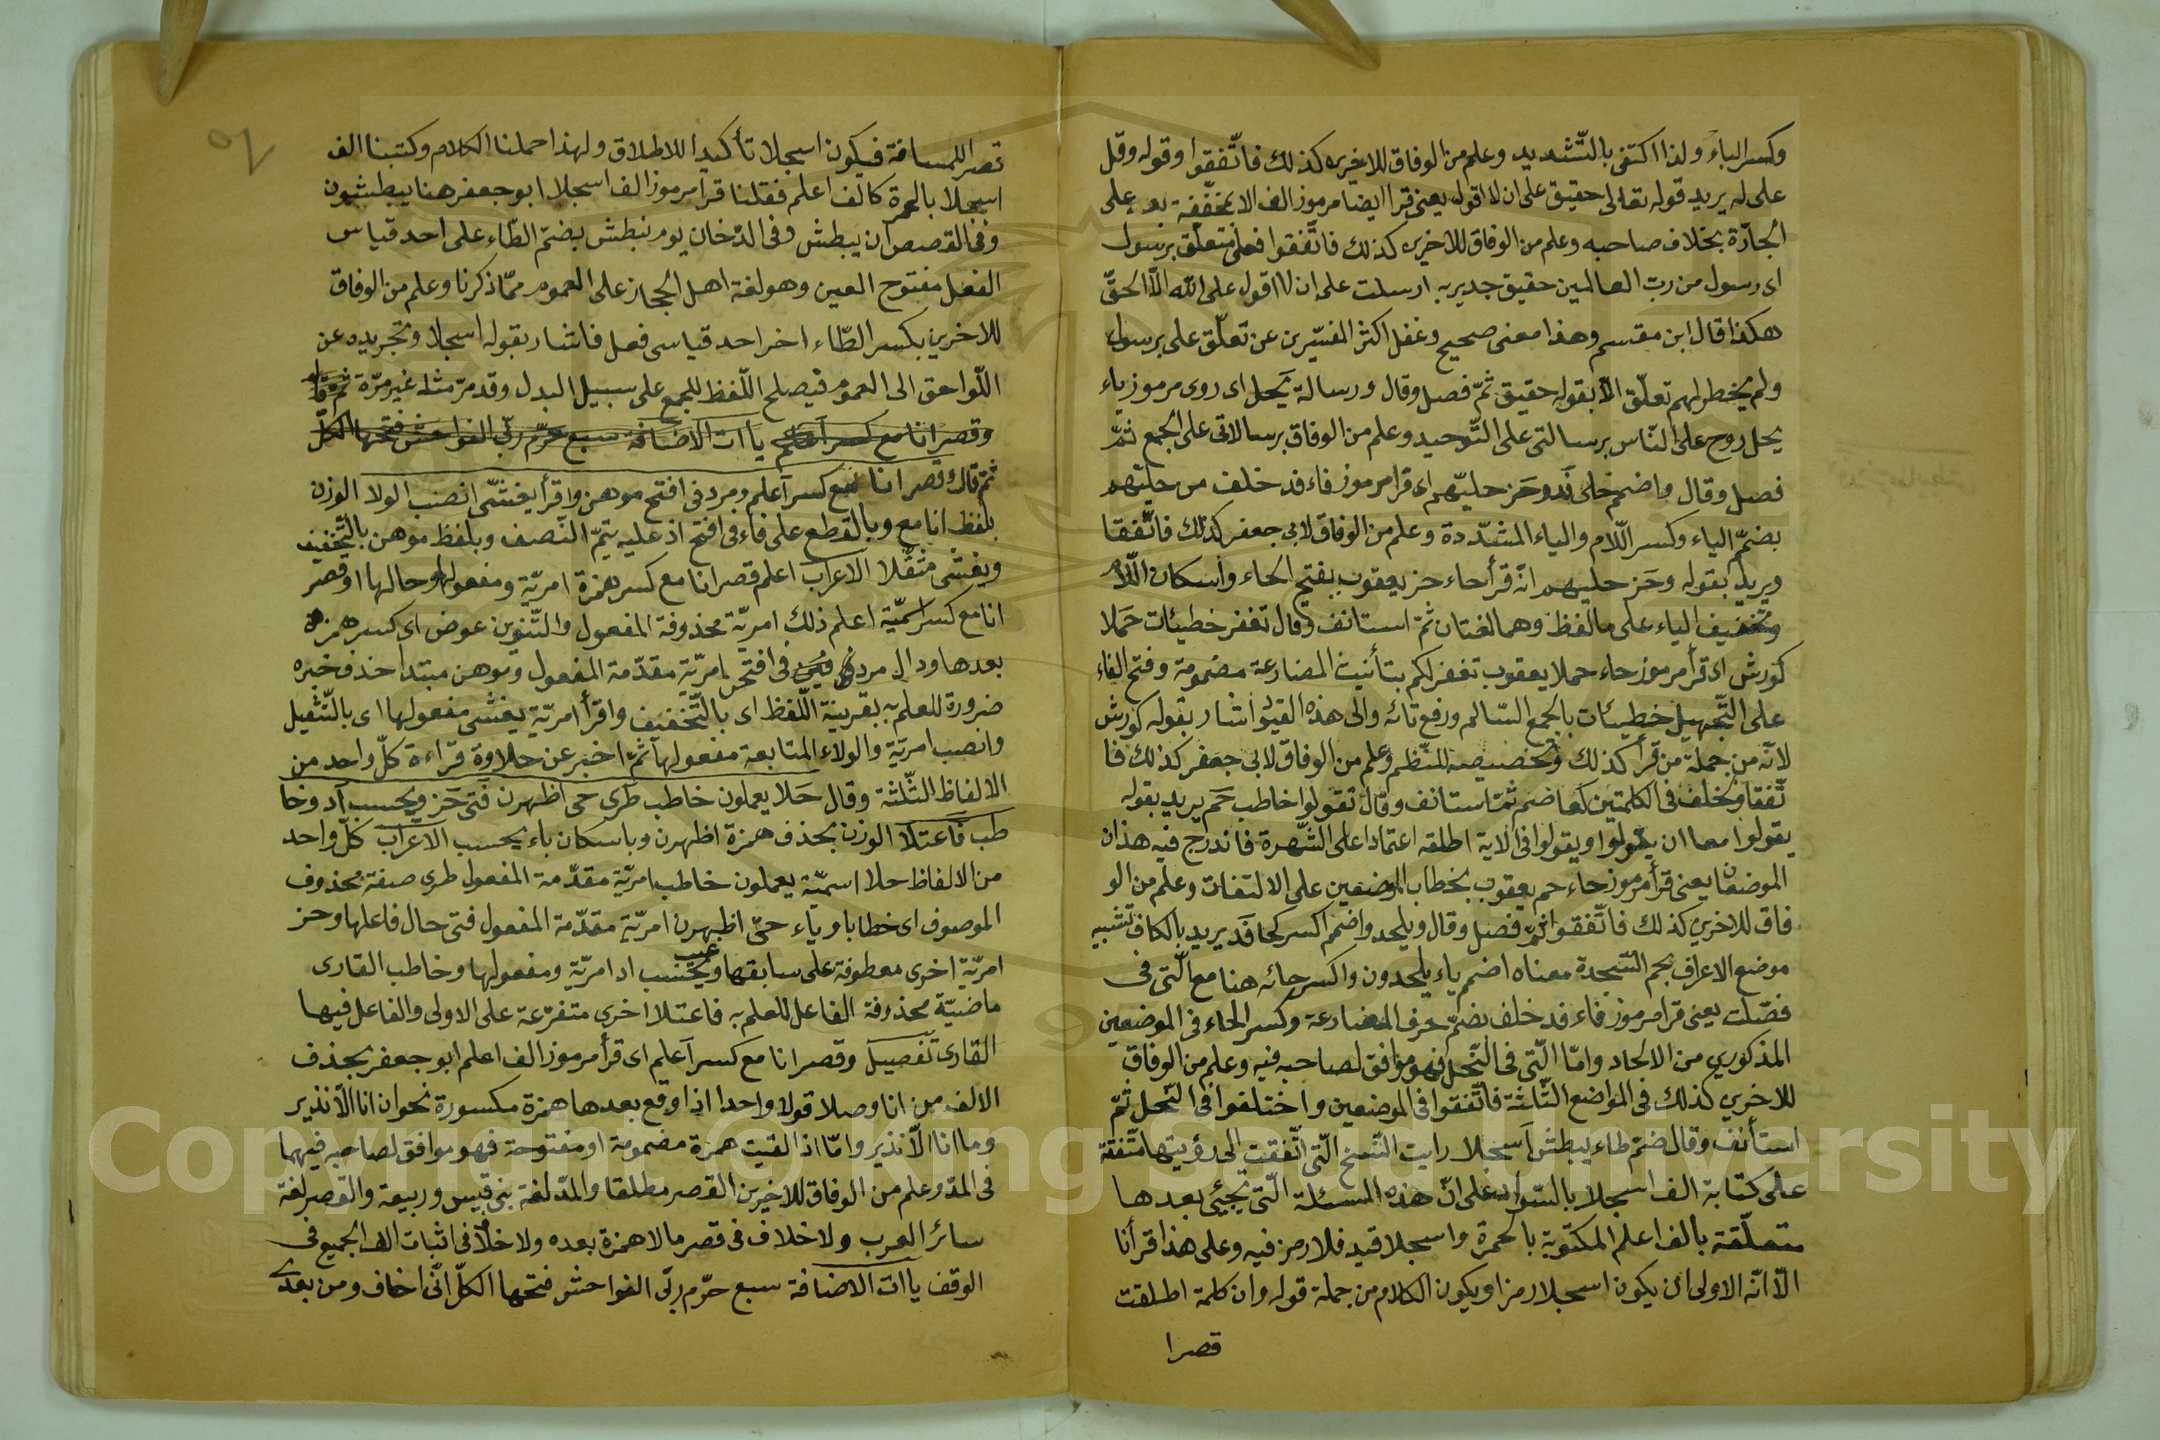 وكسر الباء ولذا اكتفى بالتّشديد وعلم من الوفاق للاخيرين كذلك فاتّفقوا وقوله وقل
على له يريد قوله تعالى حقيق على ان لا اقول يعني قرا ايضا مرموز الف الا بمخففة بعد على
الجارّة بخلاف صاحبه وعلم من الوفاق للاخرين كذلك فاتّفقوا فعلى متعلّق برسول
اى رسول من ربّ العالمين حقيق جدير به ارسلت على ان لا اقول على الله الّا الحقّ
هكذا قال ابن مقسم وهذا معنى صحيح وغفل اكثر المفسّرين عن تعلّق على برسول
ولم يخطر لهم تعلّق الّا بقوله حقيق ثمّ فصل وقال ورسالة يحل اى روى مرموز ياء
يحل روح على النّاس برسالتى على التّوحيد وعلم من الوفاق برسالاتى على الجمع ثمّ
فصل وقال واضمم حلى فد وحز حليّهم اى قرا مرموز فاء فد خلف من حليّهم
بضمّ الياء وكسر اللّام والياء المشدّدة وعلم من الوفاق لابى جعفر كذلك فاتّفقا
ويريد بقوله وحز حليهم انّه قرأ حاء حز يعقوب بفتح الحاء واسكان اللّام
وتخفيف الياء على ما لفظ وهما لغتان ثمّ استانف وقال تغفر خطيئات حملا
كورش اى قرأ مرموز حاء حملا يعقوب تغفر لكم بتأنيث المضارعة مضمومة وفتح الفاء
على التّجهيل خطيئات بالجمع السّالم ورفع تائه والى هذه القيود اشار بقوله كورش
لانّه من جملة من قرأ كذلك وتخصيصه للنّظم وعلم من الوفاق لابى جعفر كذلك فا
تّفقا وبخلف فى الكلمتين كما ضم ثمّ استانف وقال تقولوا خاطب حم يريد بقوله
يقولوا معا ان يقولوا ويقولوا فى الاية اطلقه اعتمادا على الشّهرة فاندرج فيه هذان
الموضعان يعنى قرأ مرموز حاء حم يعقوب بخطاب الموضعين على الالتفات وعلم من الو
فاق للاخرين كذلك فاتّفقوا ثمّ فصل وقال ويلحد واضمم اكسر كحا فد يريد بالكاف تشبيه
موضع الاعراف بحم السّجدة معناه اضمم ياء يلحدون واكسر حائه هنا مع الّتى فى
فصّلت يعنى قرا مرموز فاء فد خلف بضمّ حرف المضارعة وكسر الحاء فى الموضعين
المذكورين من الالحاد وامّا الّتى فى النّحل فهو موافق لصاحبه فيه وعلم من الوفاق
للاخرين كذلك فى المواضع الثّلثة فاتّفقوا فى الموضعين واختلفوا فى النّحل ثمّ
استأنف وقال ضمّ طاء يبطش اسجلا رايت النّسخ الّتى اتّفقت الى رؤيتها متّفقة
على كتابة الف اسجلا بالسّواد على انّ هذه المسئلة الّتى تجيئ بعدها
متعلّقة بالف اعلم المكتوبة بالحمرة واسجلا قيد فلا رمز فيه وعلى هذا قرأنا
الّا انّه الاولى ان يكون اسجلا رمزا ويكون الكلام من جملة قوله وان كلمة اطلقت
قصرا
قصر اللمسافة فيكون اسجلا تأكيدا للاطلاق ولهذا حملنا الكلام وكتبنا الف
اسجلا بالحمرة كالف اعلم فقلنا قرا مرموز الف اسجلا ابو جعفر هنا يبطشون
وفى القصص ان يبطش وفى الدّخان يوم نبطش بضمّ الطّاء على احد قياس
الفعل مفتوح العين وهو لغة اهل الحجاز على العموم ممّا ذكرنا وعلم من الوفاق
للاخرين بكسر الطّاء اخر احد قياسى فعل فاشار بقوله اسجلا وتجريده عن
اللّواحق الى العموم فيصلح اللّفظ للجمع على سبيل البدل وقد مرّ مثله غير مرّة ثمّ قال
وقصر انا مع كسر اعلم ياآت الاضافة سبع حرّم ربّى الفواحش فتحها الكلّ
ثمّ قال وقصر انا مع كسر اعلم ومردفى افتح موهن واقرأ يغشّى انصب الولا الوزن
بلفظ انا مع وبالقطع على فاء فى افتح اذ عليه يتمّ النّصف وبلفظ موهن بالتّخفيف
ويغشّى مثقّلا الاعراب اعلم قصر انا مع كسر همزة امريّة ومفعولها وحالها او قصر
انا مع كسر اسميّة اعلم ذلك امريّة محذوفة المفعول والتّنوين عوض اى كسر همزة
بعدها ودال مردفى فى افتحن امريّة مقدّمة المفعول وموهن مبتدا حذف خبره
ضرورة للعلم به بقرينة اللّفظ اى بالتّخفيف واقرأ امريّة يغشّى مفعولها اى بالتّثقيل
وانصب امريّة والولاء المتابعة مفعولها ثمّ اخبر عن حلاوة قراءة كلّ واحد من
الالفاظ الثّلثة وقال حلا يعملون خاطب طرى حى اظهرن فتى حز ويحسب اد وخا
طب فاعتلا الوزن بحذف همزة اظهرن وباسكان باء يحسب الاعراب كلّ واحد
من الالفاظ حلا اسميّة يعملون خاطب امريّة مقدّمة المفعول طرى صفة محذوف
الموصوف اى خطابا وياء حىّ اظهرن امريّة مقدّمة المفعول فتى حال فاعلها وحز
امريّة اخرى معطوفة على سابقها ويحسب اد امريّة ومفعولها وخاطب القارى
ماضيّة محذوفة الفاعل للعلم به فاعتلا اخرى متفرّعة على الاولى والفاعل فيها
القارى تفصيل وقصر انا مع كسر اعلم اى قرأ مرموز الف اعلم ابو جعفر بحذف
الالف من انا وصلا قولا واحدا اذا وقع بعدها همزة مكسورة نحو ان انا الّا نذير
وما انا الّا نذير وامّا اذا لقيت همزة مضمومة او مفتوحة فهو موافق لصاحبه فيهما
فى المدّ وعلم من الوفاق للاخيرين القصر مطلقا والمدّ لغة بنى قيس وربيعة والقصر لغة
سائر العرب ولا خلاف فى قصر ما لا همزة بعده ولا خلاف فى اثبات الف الجميع فى
الوقف ياآت الاضافة سبع حرّم ربّى الفواحش فتحها الكلّ انّى اخاف ومن بعدى
Copyright © King Saud University